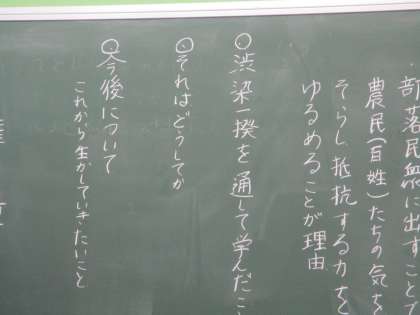 ・部落民衆に出すことで
農民(百姓)たちの気を
そらし、抵抗する力を
ゆるめることが理由
○渋染一揆を通して学んだこ
○それはどうしてか
○今後について
これから生かしていきたいこと